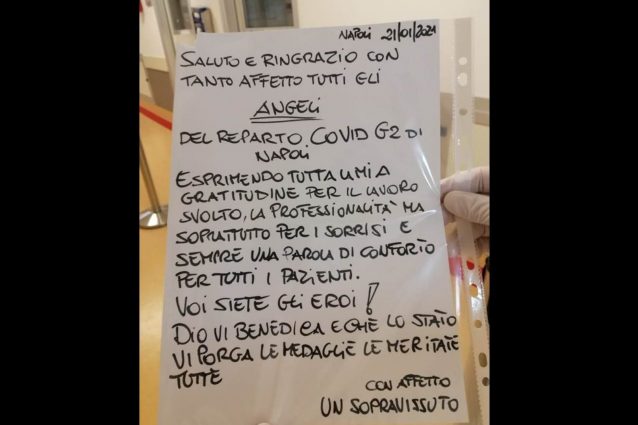 NAPOLI 21/01/2021
SALUTO E RINGRAZIO CON
TANTO AFFETTO TUTTI GLI
ANGELI
DEL REPARTO COVID G2 DI
NAPOLI.
ESPRIMENDO TUTTA LA MIA
GRATITUDINE PER IL LAVORO
SVOLTO, LA PROFESSIONALITÀ MA
SOPRATTUTTO PER I SORRISI E
SEMPRE UNA PAROLA DI CONFORTO
PER TUTTI I PAZIENTI.
VOI SIETE GLI EROI!
DIO VI BENEDICA E CHE LO STATO
VI PORGA LE MEDAGLIE LE MERITATE
TUTTE
CON AFFETTO
UN SOPRAVISSUTO